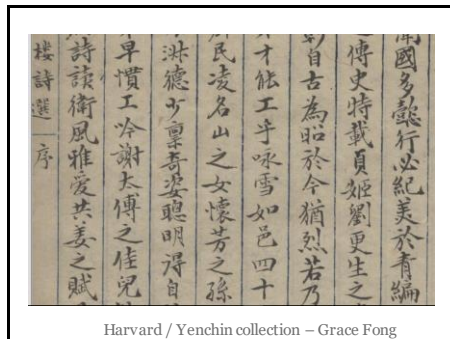 國多懿行必紀美於青編
傳史特載貞姬劉更生之
自古為昭於今猶烈若乃
才能工乎咏雪如邑四十
民凌名山之女懷芳之孫
淑德少稟奇姿聰明得自
早慣工吟謝太傅之佳兒
詩讀衛風雅愛共姜之賦
樓詩選 序
Harvard / Yenchin collection – Grace Fong